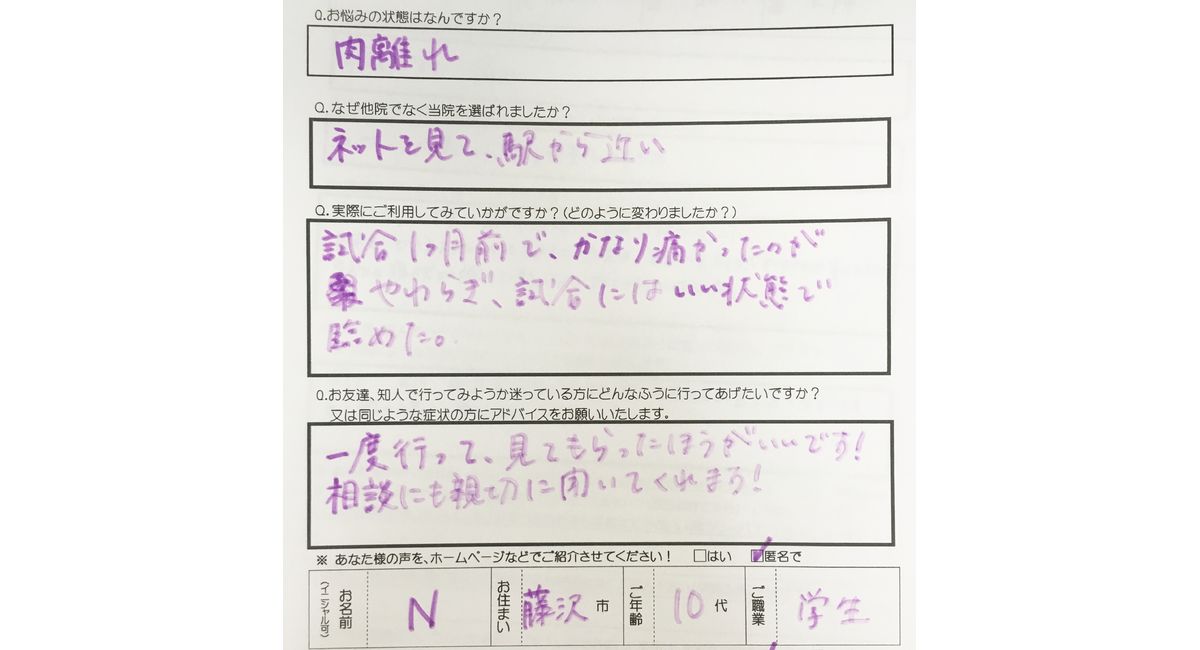 Q.お悩みの状態はなんですか？
肉離れ
Q.なぜ他院でなく当院を選ばれましたか？
ネットを見て、駅から近い
Q.実際にご利用してみていかがですか？(どのように変わりましたか？)
試合1ヶ月前で、かなり痛かったのが
やわらぎ、試合にはいい状態で
臨めた。
Q.お友達、知人で行ってみようか迷っている方にどんなふうに行ってあげたいですか？
又は同じような症状の方にアドバイスをお願いいたします。
一度行って、見てもらったほうがいいです!
相談にも親切に聞いてくれます!
※ あなた様の声を、ホームページなどでご紹介させてください! □はい □匿名で
お名前 (イニシャル可) N お住まい 藤沢 市 ご年齢 10 代 ご職業 学生